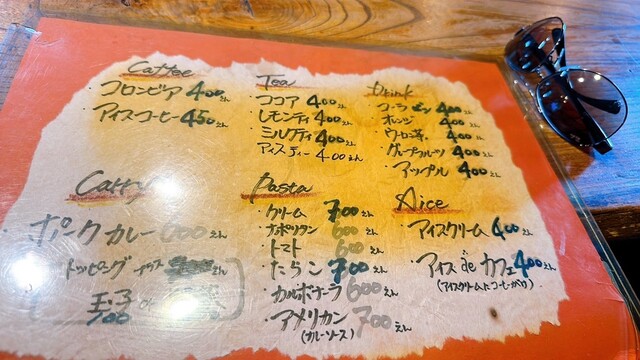 Caffee
コロンビア 400えん
アイスコーヒー 450えん
Tea
ココア 400えん
レモンティ 400えん
ミルクティ 400えん
アイスティー 400えん
Drink
コーラ 400えん
オレンジ 400えん
ウーロン茶 400えん
グレープフルーツ 400えん
アップル 400えん
Carry
ポークカレー えん
トッピング
玉子 or
100
Pasta
クリーム 700えん
ナポリタン 600えん
トマト 600えん
たらこ 700えん
カルボナーラ 600えん
アメリカン 700えん
(カレーソース)
Aice
アイスクリーム 400えん
アイス de カフェ 400えん
(アイスクリームにコーヒーがけ)